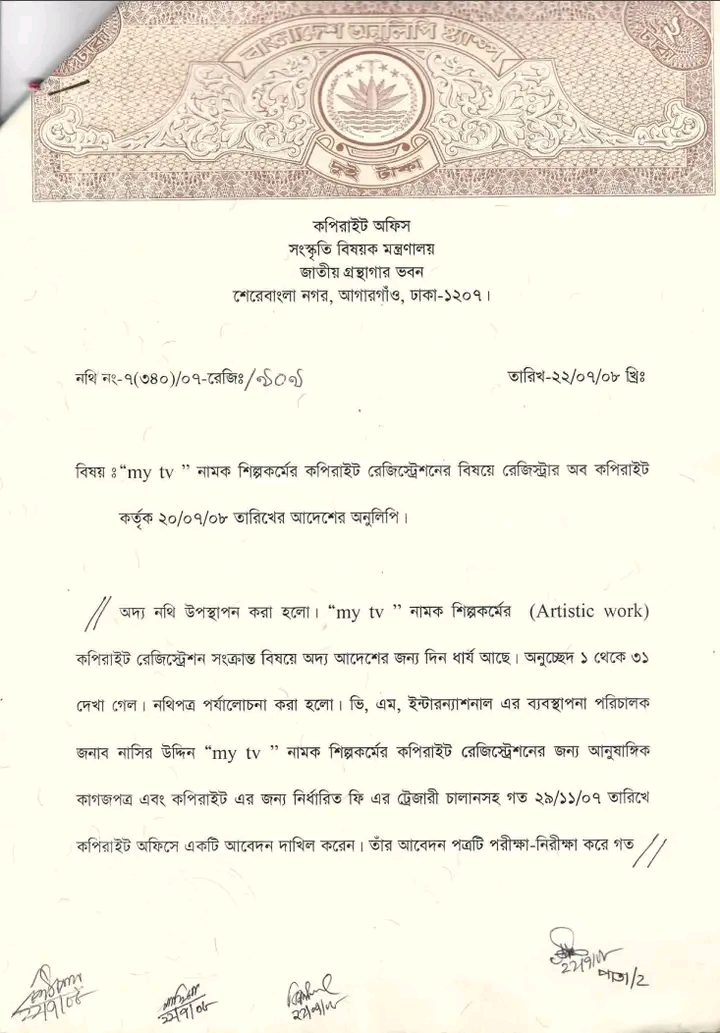 বাংলাদেশ অনুলিপি স্ট্যাম্প
দুই টাকা
কপিরাইট অফিস
সংস্কৃতি বিষয়ক মন্ত্রণালয়
জাতীয় গ্রন্থাগার ভবন
শেরেবাংলা নগর, আগারগাঁও, ঢাকা-১২০৭।
নথি নং-৭(৩৪০)/০৭-রেজিঃ/ তারিখ-২২/০৭/০৮ খ্রিঃ
বিষয় ঃ “my tv ” নামক শিল্পকর্মের কপিরাইট রেজিস্ট্রেশনের বিষয়ে রেজিস্ট্রার অব কপিরাইট
কর্তৃক ২০/০৭/০৮ তারিখের আদেশের অনুলিপি।
// অদ্য নথি উপস্থাপন করা হলো। “my tv ” নামক শিল্পকর্মের (Artistic work)
কপিরাইট রেজিস্ট্রেশন সংক্রান্ত বিষয়ে অদ্য আদেশের জন্য দিন ধার্য আছে। অনুচ্ছেদ ১ থেকে ৩১
দেখা গেল। নথিপত্র পর্যালোচনা করা হলো। ভি, এম, ইন্টারন্যাশনাল এর ব্যবস্থাপনা পরিচালক
জনাব নাসির উদ্দিন “my tv ” নামক শিল্পকর্মের কপিরাইট রেজিস্ট্রেশনের জন্য আনুষাঙ্গিক
কাগজপত্র এবং কপিরাইট এর জন্য নির্ধারিত ফি এর ট্রেজারী চালানসহ গত ২৯/১১/০৭ তারিখে
কপিরাইট অফিসে একটি আবেদন দাখিল করেন। তাঁর আবেদন পত্রটি পরীক্ষা-নিরীক্ষা করে গত //
২২/৭/০৮
২২/৭/০৮
২২/৭/০৮
২২/৭/০৮
পাতা/২